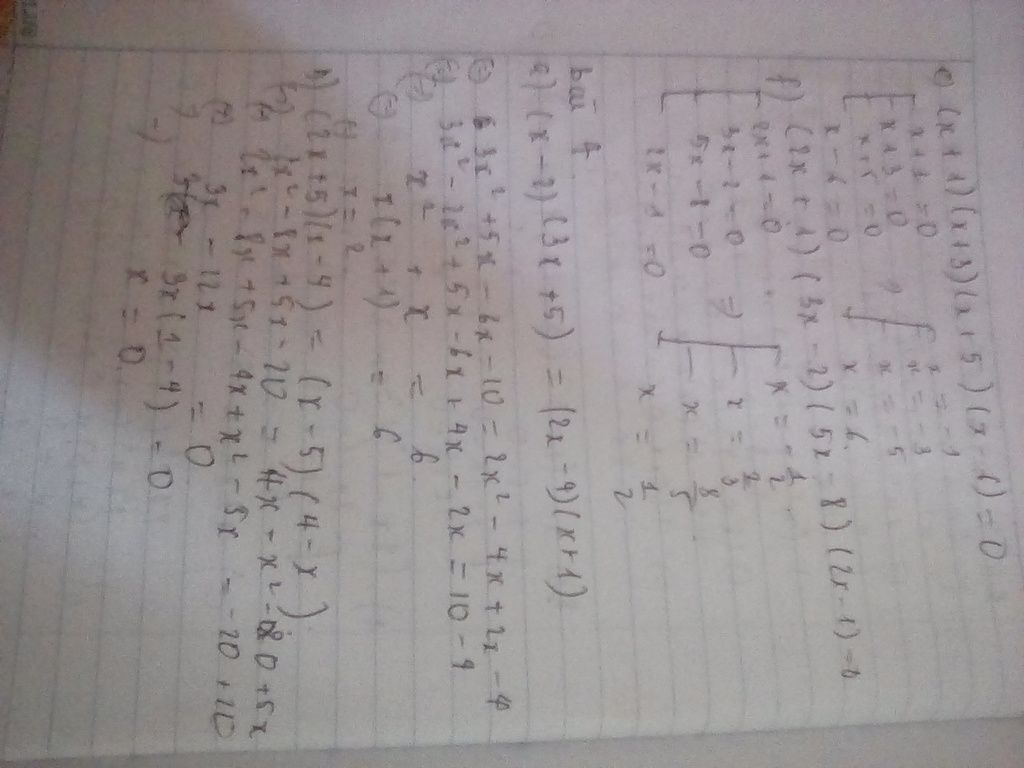 e) (x+1)(x+3)(x+5)(x-6)=0
x+1=0 x=-1
x+3=0 => x=-3
x+5=0 x=-5
x-6=0 x=6
f) (2x+1)(3x-2)(5x-8)(2x-1)=0
2x+1=0 x=-1/2
3x-2=0 => x=2/3
5x-8=0 x=8/5
2x-1=0 x=1/2
bài 4
a) (x-2)(3x+5)=(2x-4)(x+1)
3x²+5x-6x-10=2x²-4x+2x-4
3x²-2x²+5x-6x+4x-2x=10-4
x²+x=6
x(x+1)=6
x=2
b) (2x+5)(x-4)=(x-5)(4-x)
2x²-8x+5x-20=4x-x²-20+5x
2x²-8x+5x-4x+x²-5x=-20+20
3x-12x=0
3x(1-4)=0
x=0